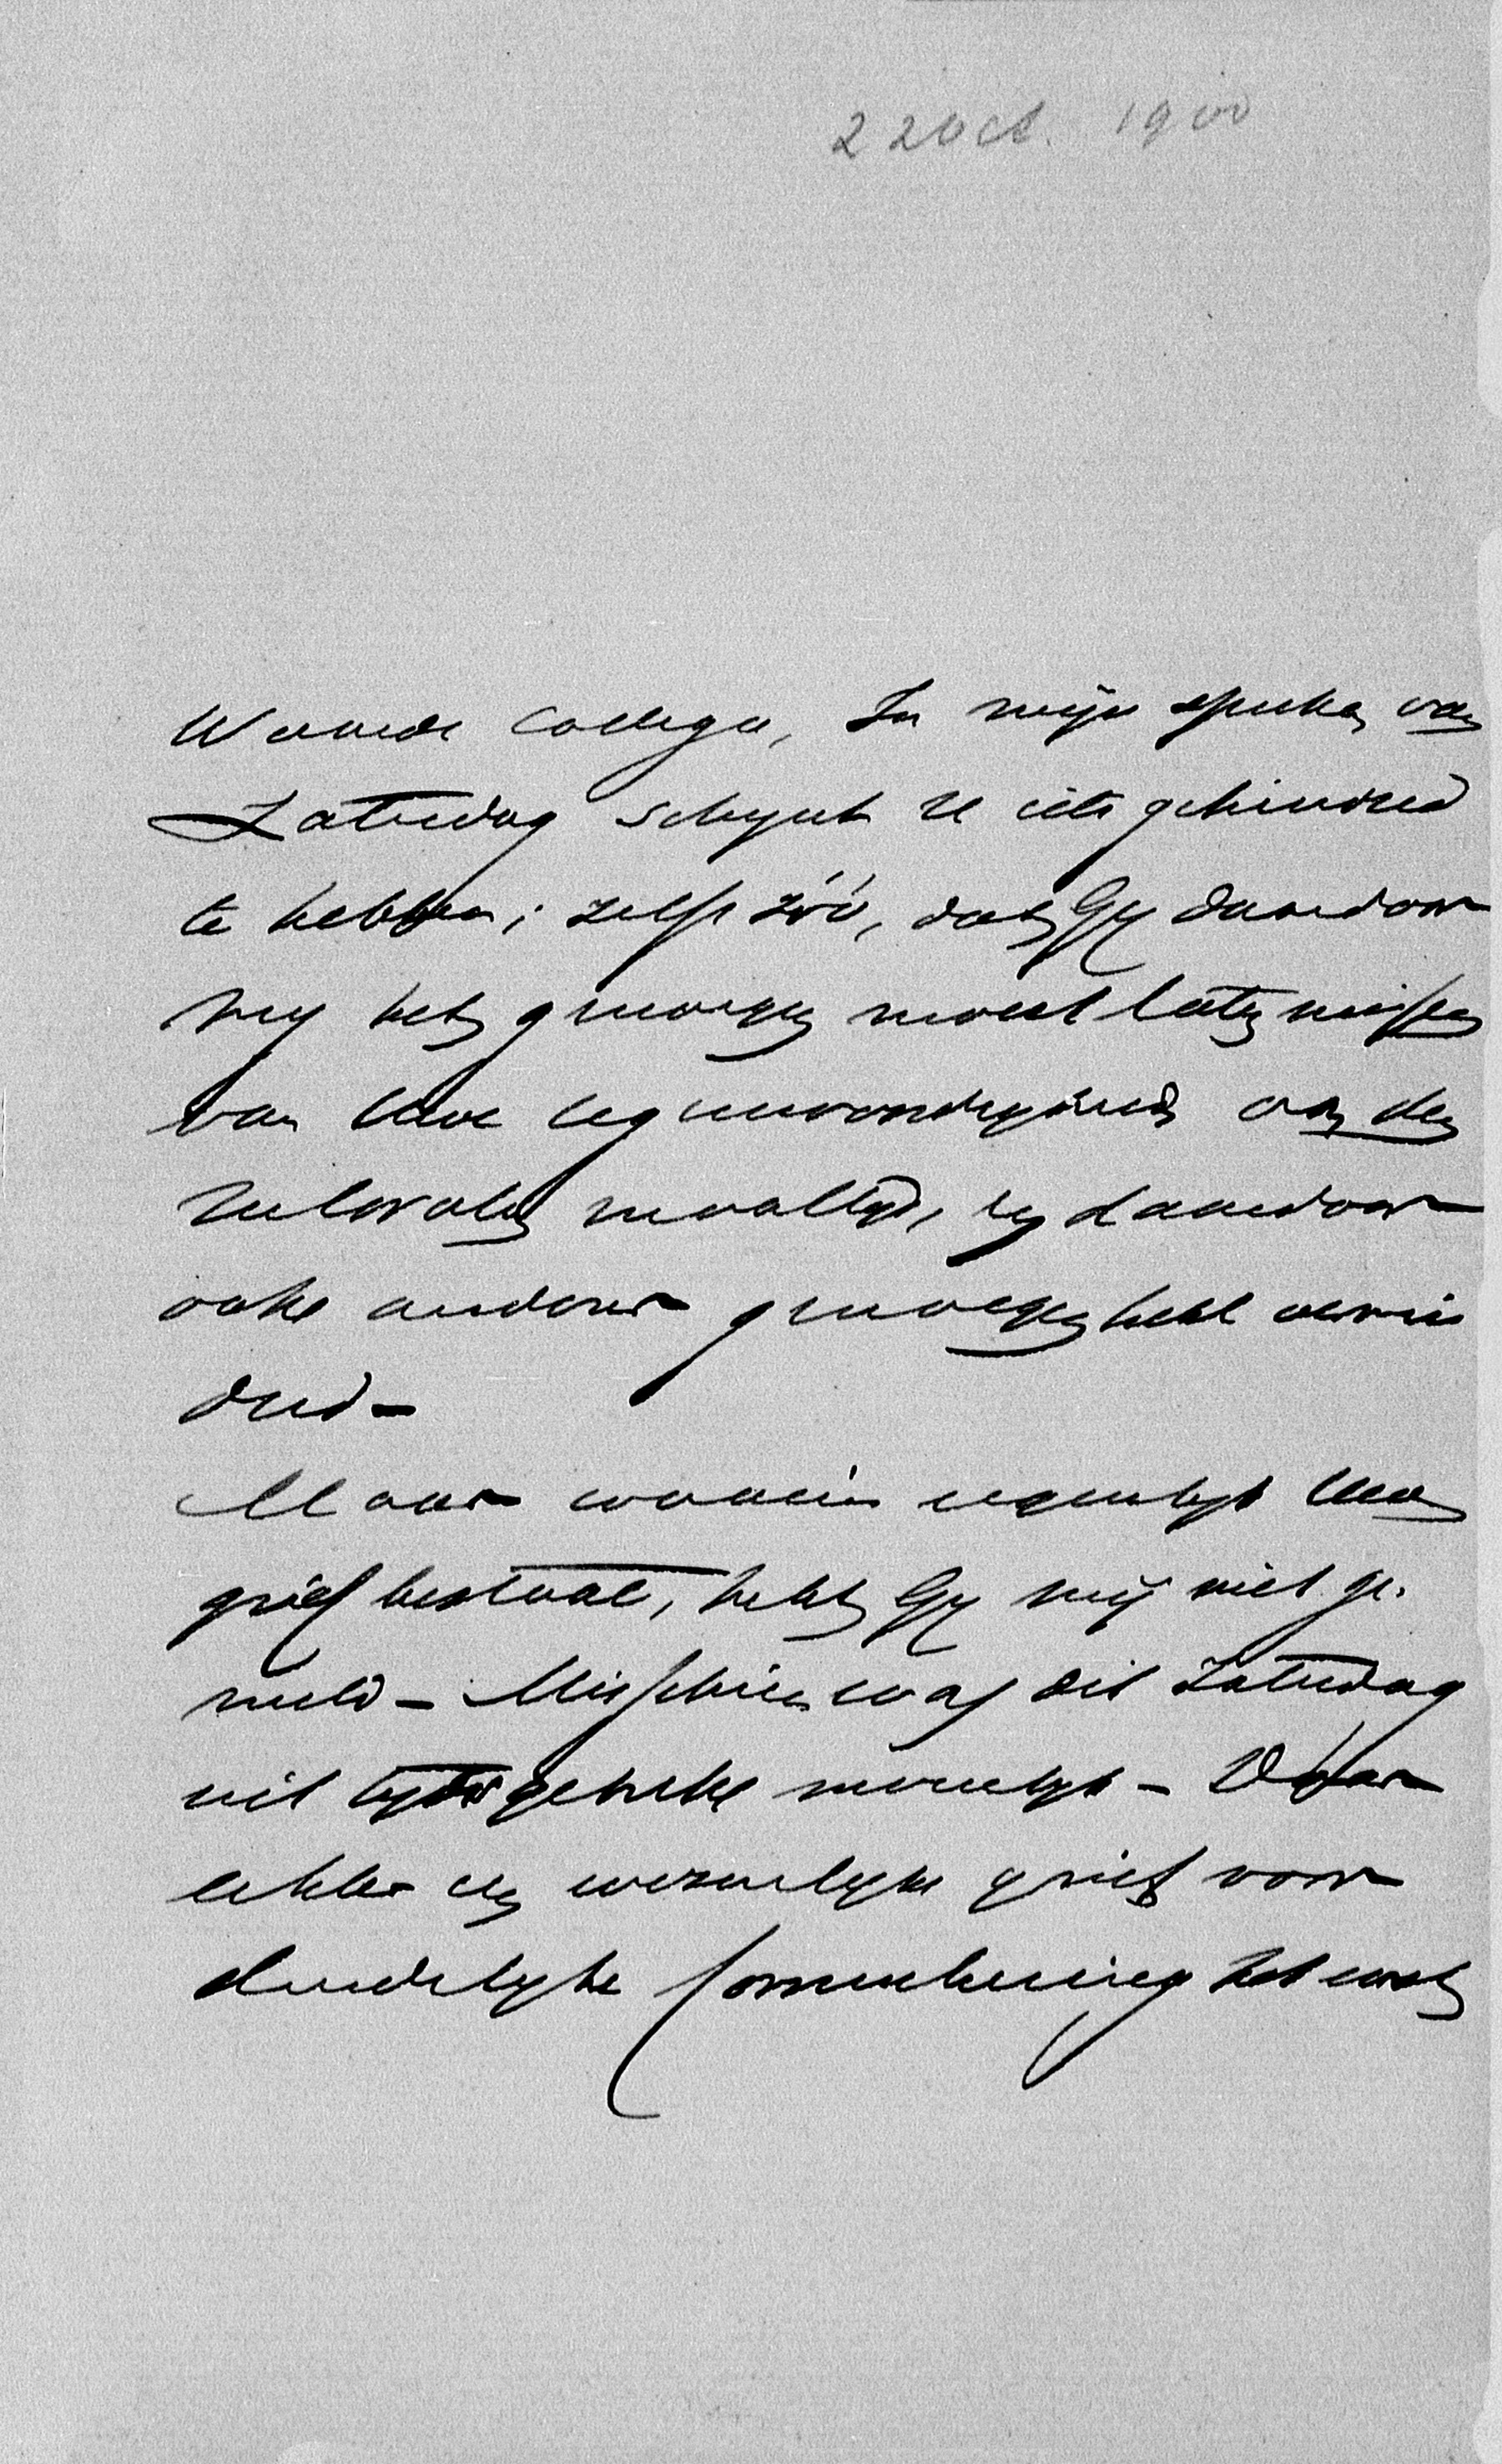 22 Oct. 1900
Waarde Collega, In mijn spreken van
Zaturdag schijnt U iets gehinderd
te hebben; zelfs zóó, dat Gij daardoor
mij het genoegen moest laten missen
van Uwe tegenwoordigheid aan den
maaltijd, en daardoor
ook anderer genoegen hebt vermin
derd –
Maar waarin eigenlijk Uwe
grief bestaat, hebt Gij mij niet ge-
meld – Misschien was dit Zaturdag
uit tijdsgebrek moeielijk – Daar
echter een wezenlijke grief voor
duidelijke formuleering